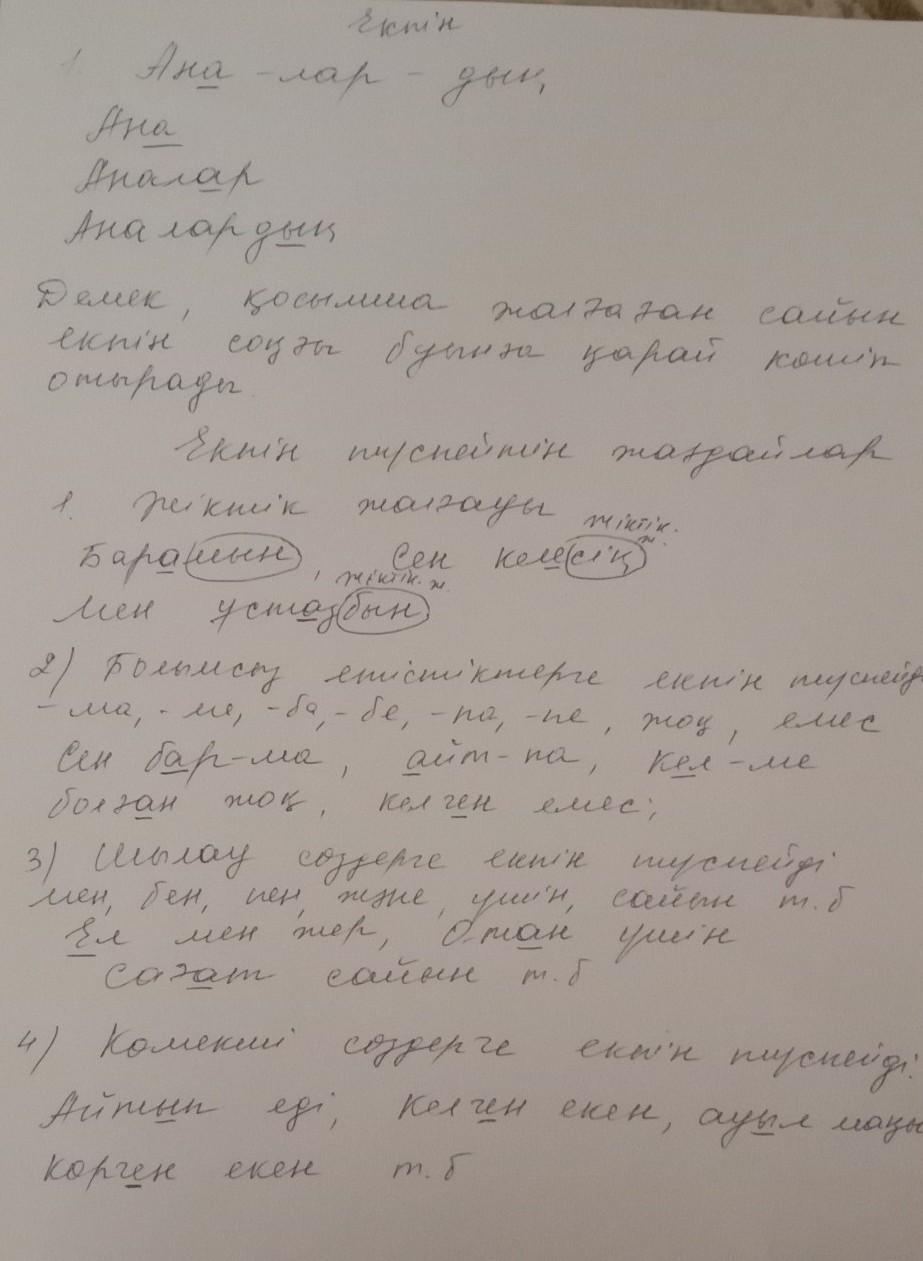 Екпін
1. Ана -лар - дың
Ана
Аналар
Аналардың
Демек, қосымша жалғаған сайын
екпін соңғы буынға қарай көшіп
отырады.
Екпін түспейтін жағдайлар
1. Жіктік жалғауы
жіктік.
ж.
Барамын, Сен келесің
жіктік. ж.
Мен ұстазбын
2) Болымсыз етістіктерге екпін түспейді
-ма, -ме, -ба, -бе, -па, -пе, жоқ, емес
Сен бар-ма, айт-па, кел-ме
болған жоқ, келген емес;
3) Шылау сөздерге екпін түспейді
мен, бен, пен, және, үшін, сайын т.б
Ел мен жер, Отан үшін
Сағат сайын т.б
4) Көмекші сөздерге екпін түспейді.
Айтып еді, Келген екен, ауыл маңы
көрген екен т.б